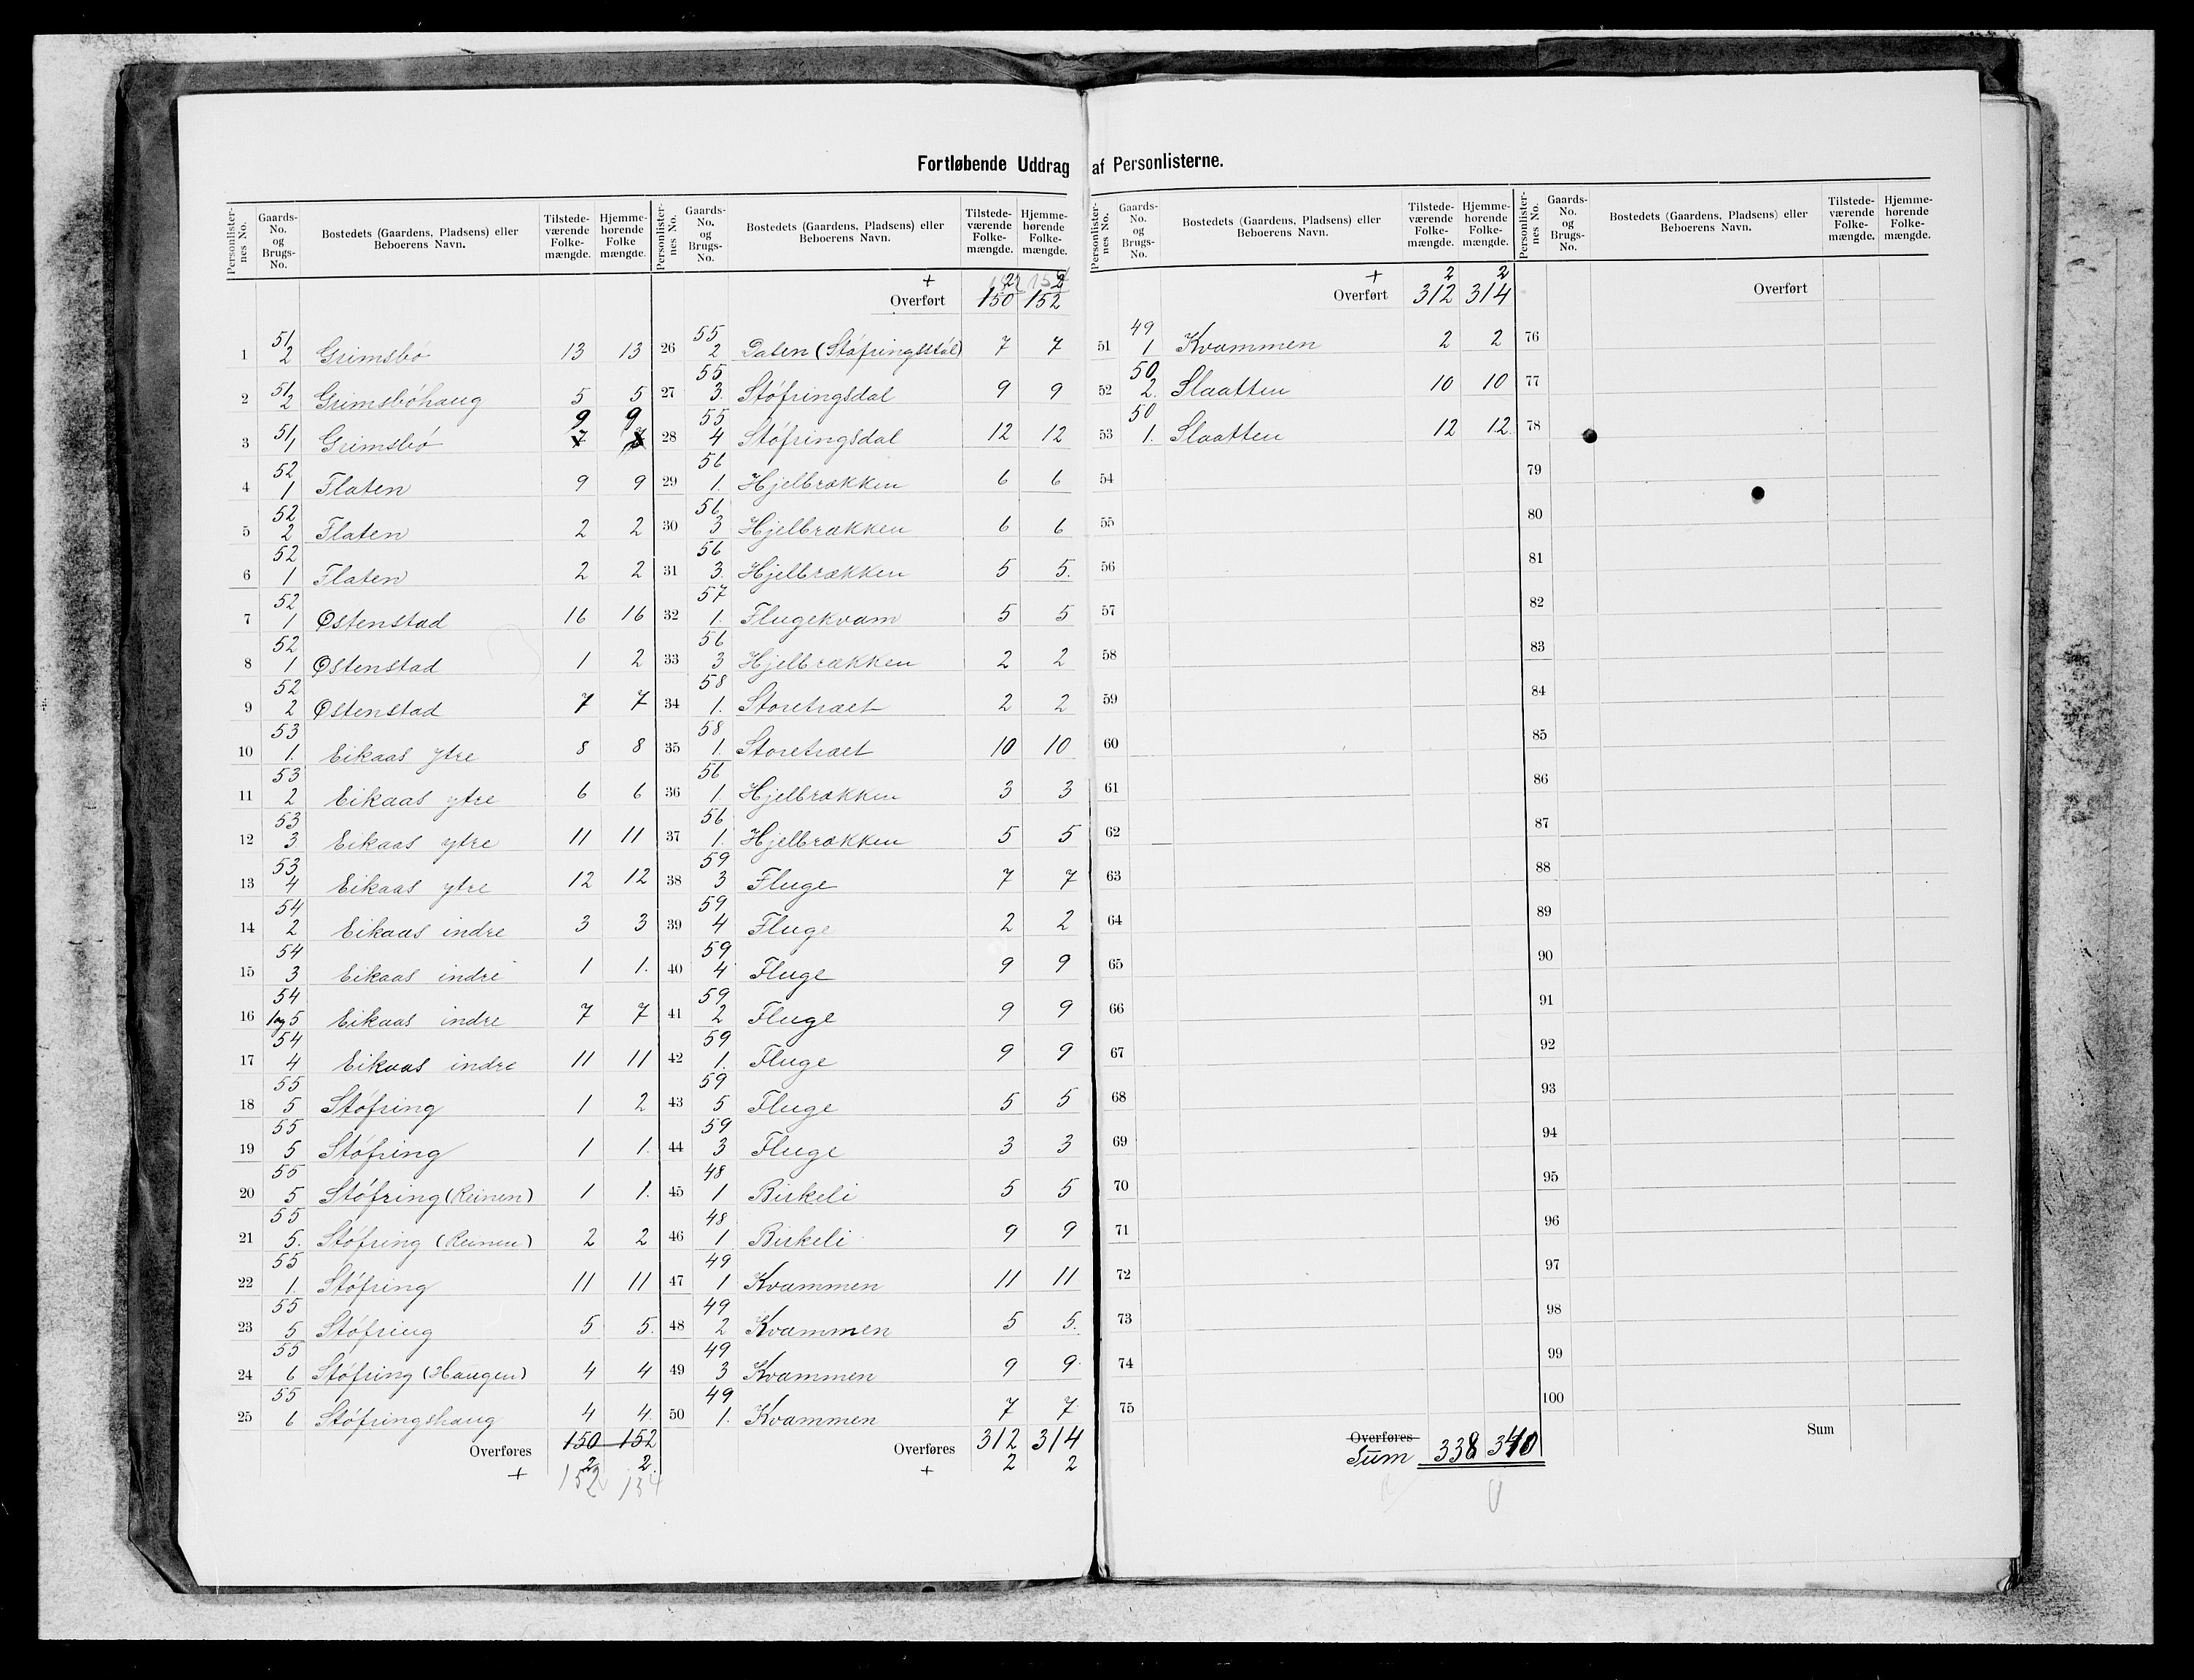 Fortløbende Uddrag af Personlisterne.
Personlister-nes No. | Gaards-No. og Brugs-No. | Bostedets (Gaardens, Pladsens) eller Beboerens Navn. | Tilstede-værende Folke-mængde. | Hjemme-hørende Folke mængde.
1 51/2 Grimsbó 13 13
2 51/2 Grimsbóhaug 5 5
9 9
3 51/1 Grimsbó 7
4 52/1 Flaten 9 9
5 52/2 Flaten 2 2
6 52/1 Flaten 2 2
7 52/1 Østenstad 16 16
8 52/1 Østenstad 1 2
9 52/2 Østenstad 7 7
10 53/1. Eikaas ytre 8 8
11 53/2 Eikaas ytre 6 6
12 53/3. Eikaas ytre 11 11
13 53/4 Eikaas ytre 12 12
14 54/2 Eikaas indre 3 3
15 54/3 Eikaas indre 1 1.
16 54/1 og 5 Eikaas indre 7 7
17 54/4 Eikaas indre 11 11
18 55/5 Stófring 1 2
19 55/5 Stófring 1 1.
20 55/5 Stófring (Reinen) 1 1.
21 55/5. Stófring (Reinen) 2 2
22 55/1. Stófring 11 11
23 55/5 Stófring 5 5.
24 55/6 Stófring (Haugen) 4 4
25 55/6 Stófringshaug 4 4.
Overføres 150 152
+ 2 2.
152 154
Personlister-nes No. | Gaards-No. og Brugs-No. | Bostedets (Gaardens, Pladsens) eller Beboerens Navn. | Tilstede-værende Folke-mængde. | Hjemme-hørende Folke-mængde.
+ 2 2
Overført 150 152
26 55/2 Dalen (Stófringsstól) 7 7
27 55/3. Stófringsdal 9 9
28 55/4 Stófringsdal 12 12
29 56/1. Hjelbrækken 6 6
30 56/3 Hjelbrækken 6 6
31 56/3. Hjelbrækken 5 5.
32 57/1. Flugekvam 5 5
33 56/3 Hjelbrækken 2 2
34 58/1. Storetræet 2 2
35 58/1. Storetræet 10 10
36 56/1. Hjelbrækken 3 3
37 56/1. Hjelbrækken 5 5
38 59/3 Fluge 7 7
39 59/4 Fluge 2 2
40 59/4 Fluge 9 9
41 59/2 Fluge 9 9
42 59/1. Fluge 9 9
43 59/5 Fluge 5 5
44 59/3 Fluge 3 3
45 48/1 Birkeli 5 5
46 48/1 Birkeli 9 9
47 49/1 Kvammen 11 11
48 49/2 Kvammen 5 5.
49 49/3 Kvammen 9 9
50 49/1. Kvammen 7 7
Overføres 312 314
+ 2 2
Personlister-nes No. | Gaards-No. og Brugs-No. | Bostedets (Gaardens, Pladsens) eller Beboerens Navn. | Tilstede-værende Folke-mængde. | Hjemme-hørende Folke-mængde.
+ 2 2
Overført 312 314
51 49/1 Kvammen 2 2
52 50/2. Slaatten 10 10
53 50/1. Slaatten 12 12.
54
55
56
57
58
59
60
61
62
63
64
65
66
67
68
69
70
71
72
73
74
75
Overføres
Sum 338 340
Personlister-nes No. | Gaards-No. og Brugs-No. | Bostedets (Gaardens, Pladsens) eller Beboerens Navn. | Tilstede-værende Folke-mængde. | Hjemme-hørende Folke-mængde.
Overført
76
77
78
79
80
81
82
83
84
85
86
87
88
89
90
91
92
93
94
95
96
97
98
99
100
Sum